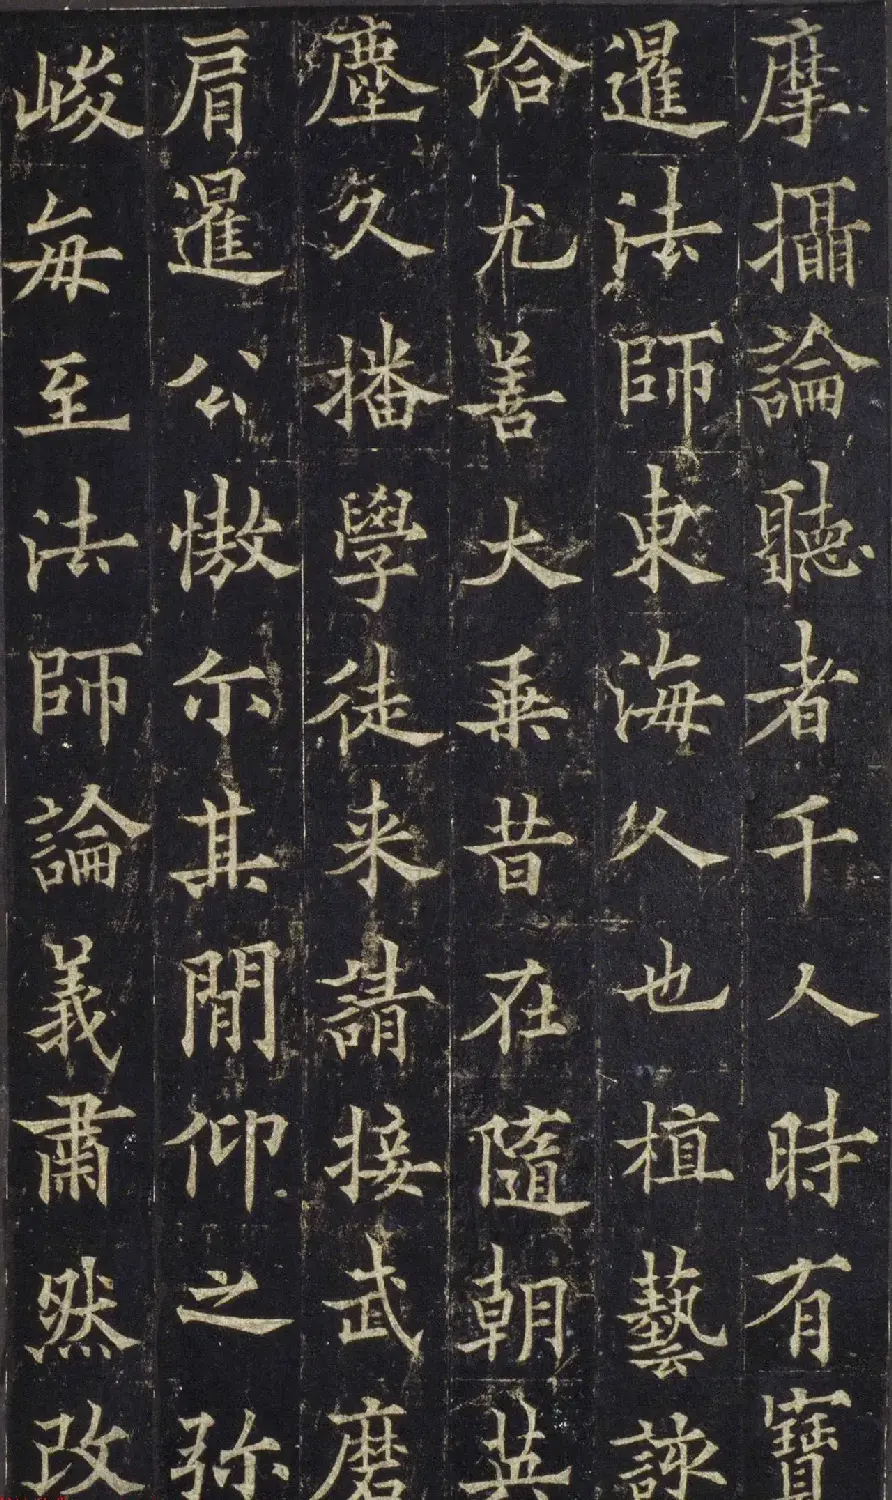 摩攝論聽者千人時有寶
暹法師東海人也植藝該
洽尤善大乗昔在隨朝英
塵久播學徒来請接武磨
肩暹公傲尓其閒仰之弥
峻每至法師論義肅然改